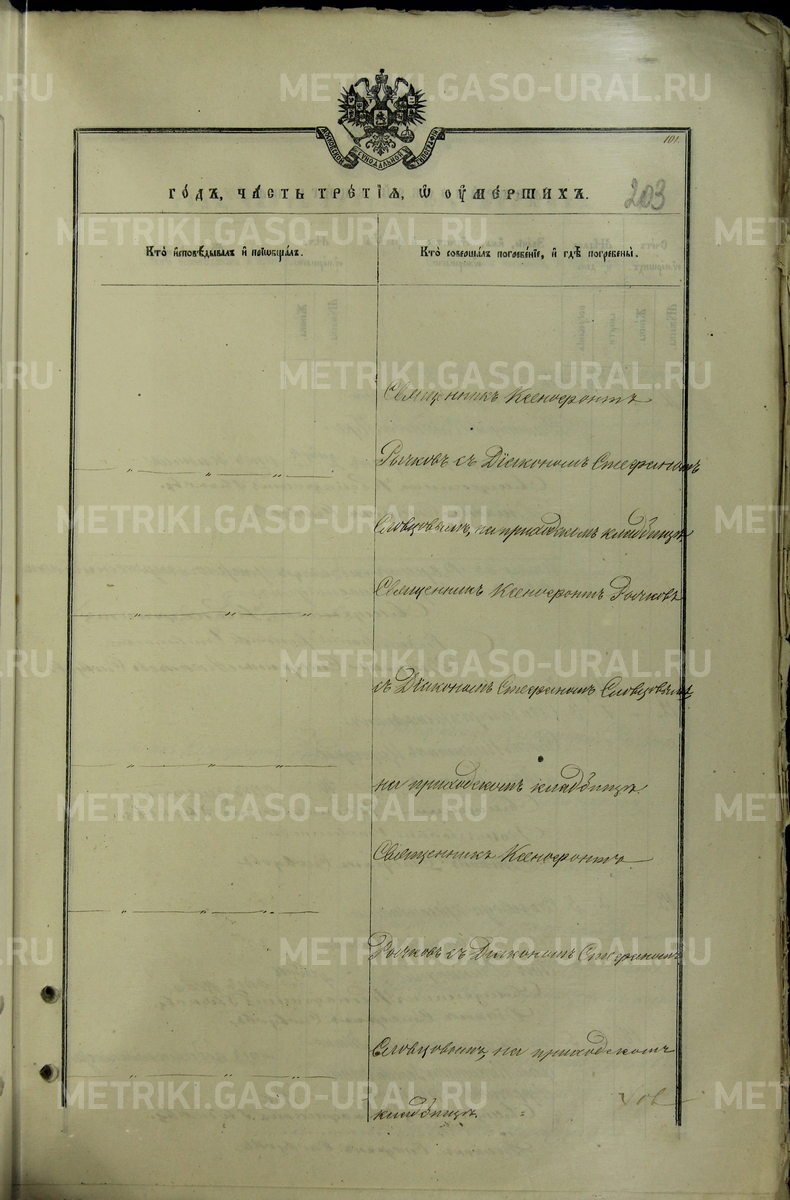 МОСКОВСКОЙ СѴНОДАЛЬНОЙ ТИПОГРАФІИ
101.
203
ГО́ДЪ, ЧА́СТЬ ТРЕ́ТІѦ, Ѡ҆ ОУ҆МЕ́РШИХЪ.
Кто̀ и҆сповѣ́дывалъ и҆ пріѡбща́лъ.
Кто̀ соверша́лъ погребе́ніе, и҆ гдѣ̀ погребены̀.
Священникъ Ксенофонтъ
Рычковъ съ Діакономъ Стефаномъ
Словцовымъ, на приходскомъ кладбищѣ
Священникъ Ксенофонтъ Рычковъ
съ Діакономъ Стефаномъ Словцовымъ,
на приходскомъ кладбищѣ.
Священникъ Ксенофонтъ
Рычковъ съ Діакономъ Стефаномъ
Словцовымъ, на приходскомъ
кладбищѣ.
METRIKI.GASO-URAL.RU